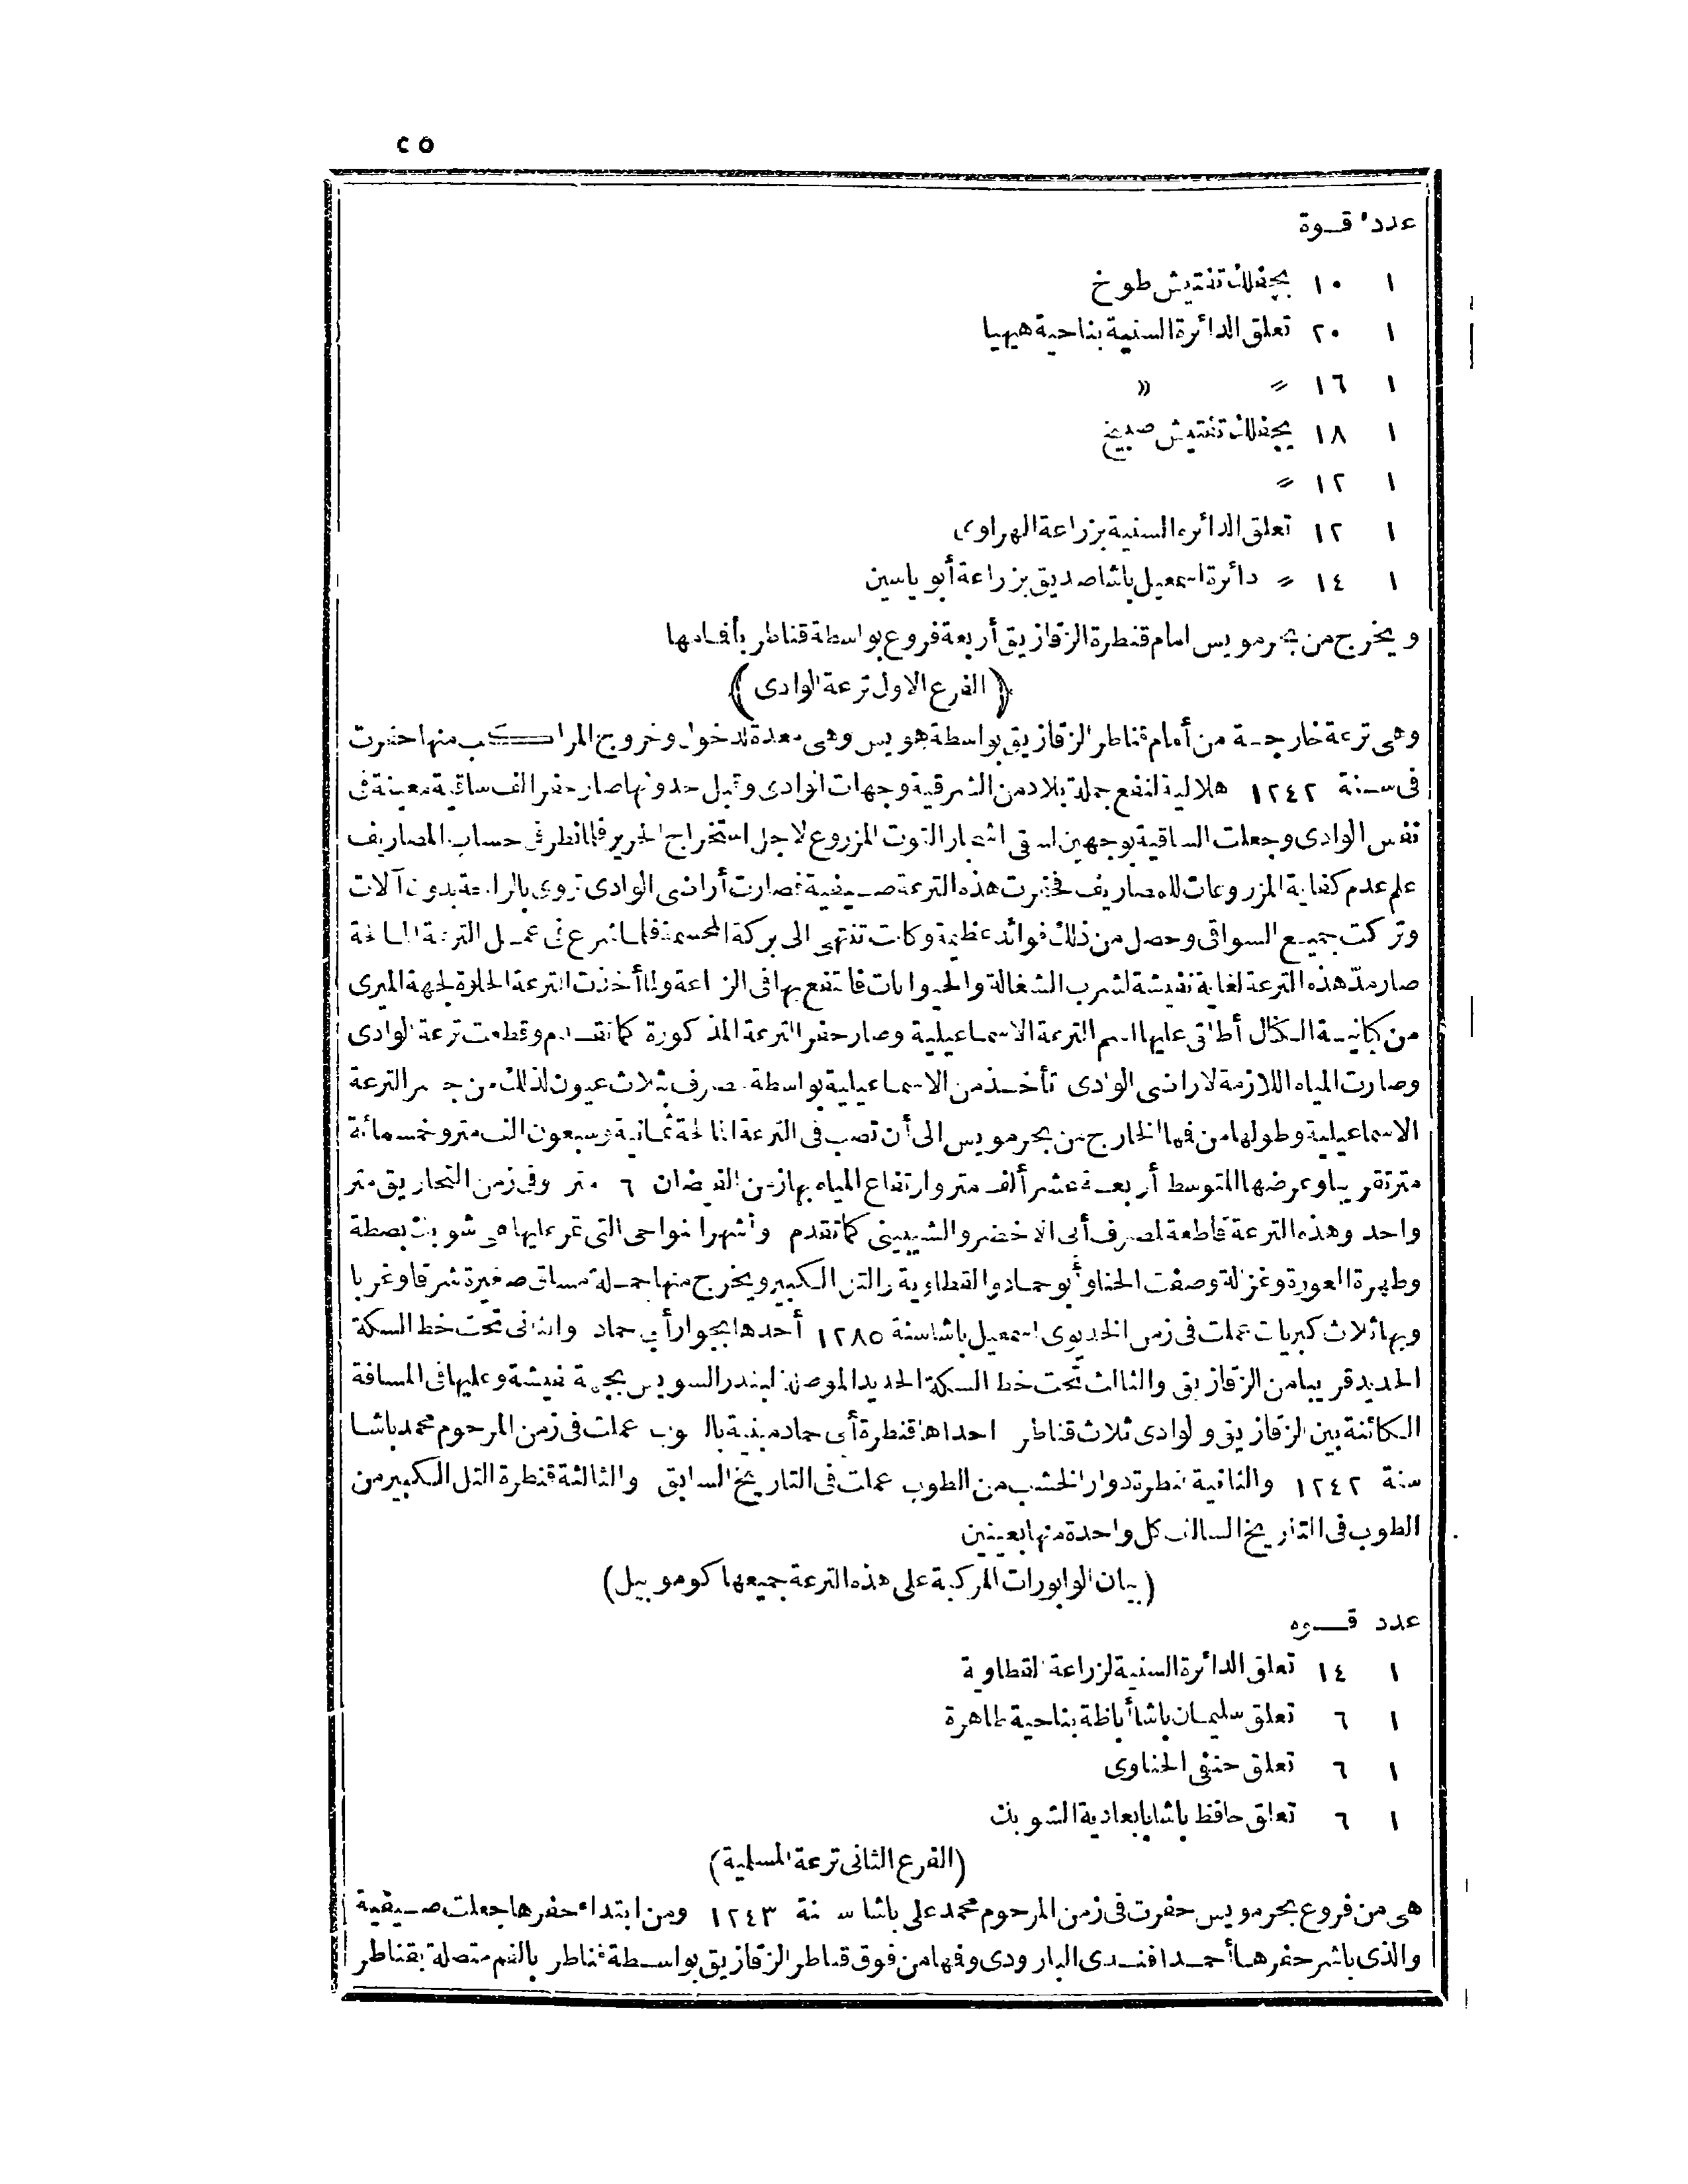 ٢٥
عدد قوة
١ ١٠ بجفلك تفتيش طوخ
١ ٢٠ تعلق الدائرة السنية بناحية هيهيا
١ ١٦ » »
١ ١٨ بجفلك تفتيش صبيح
١ ١٢ »
١ ١٢ تعلق الدائره السنية بزراعة الهراوى
١ ١٤ » دائرة اسمعيل باشا صديق بزراعة أبو ياسين
ويخرج من بحر مويس امام قنطرة الزقازيق أربعة فروع بواسطة قناطر بأفمامها
(الفرع الاول ترعة الوادى)
وهى ترعة خارجة من أمام قناطر الزقازيق بواسطة هويس وهى معدة لدخول وخروج المراكب منها حفرت
فى سنة ١٢٤٢ هلالية لنفع جملة بلاد من الشرقية وجهات الوادى وقبل حدوثها صار حفر الف ساقية معينة فى
نفس الوادى وجعلت الساقية بوجهين لسقى اشجار التوت المزروع لاجل استخراج الحرير فلما نظر فى حساب المصاريف
علم عدم كفاية المزروعات للمصاريف فحفرت هذه الترعة صيفية فصارت أراضى الوادى تروى بالراحة بدون آلات
وتركت جميع السواقى وحصل من ذلك فوائد عظيمة وكانت تنتهى الى بركة المحسمة فلما شرع فى عمل الترعة المالحة
صار مدّ هذه الترعة لغاية نفيشة لشرب الشغالة والحيوانات فانتفع بها فى الزراعة ولما أخذت الترعة الحلوة لجهة الميرى
من كبانية الكنال أطلق عليها اسم الترعة الاسماعيلية وصار حفر الترعة المذكورة كما تقدم وقطعت ترعة الوادى
وصارت المياه اللازمة لاراضى الوادى تأخذ من الاسماعيلية بواسطة مصرف بثلاث عيون لذلك من جسر الترعة
الاسماعيلية وطولها من فمها الخارج من بحر مويس الى أن تصب فى الترعة المالحة ثمانية وسبعون الف متر وخمسمائة
متر تقريبا وعرضها المتوسط أربعة عشر ألف متر وارتفاع المياه بها زمن الفيضان ٦ متر وفى زمن التحاريق متر
واحد وهذه الترعة قاطعة لمصرف أبى الاخضر والشبينى كما تقدم وأشهر النواحى التى تمر عليها هى شوبك بصطة
وطهرة العورة وغزالة وصفت الحنا وأبو حماد والقطاوية والتل الكبير ويخرج منها جملة مساقى صغيرة شرقا وغربا
وبها ثلاث كبريات عملت فى زمن الخديوى اسمعيل باشا سنة ١٢٨٥ أحدها بجوار أبى حماد والثانى تحت خط السكة
الحديد قريبا من الزقازيق والثالث تحت خط السكة الحديد الموصلة لبندر السويس بجهة نفيشة وعليها فى المسافة
الكائنة بين الزقازيق والوادى ثلاث قناطر احداها قنطرة أبى حماد مبنية بالطوب عملت فى زمن المرحوم محمد باشا
سنة ١٢٤٢ والثانية قنطرة دوار الخشب من الطوب عملت فى التاريخ السابق والثالثة قنطرة التل الكبير من
الطوب فى التاريخ السالف كل واحدة منها بعينين
(بيان الوابورات المركبة على هذه الترعة جميعها كوموبيل)
عدد قوه
١ ١٤ تعلق الدائرة السنية لزراعة القطاوية
١ ٦ تعلق سليمان باشا أباظة بناحية طاهرة
١ ٦ تعلق حنفى الحناوى
١ ٦ تعلق حافظ باشا بابعادية الشوبك
(الفرع الثانى ترعة المسلمية)
هى من فروع بحر مويس حفرت فى زمن المرحوم محمد على باشا سنة ١٢٤٣ ومن ابتداء حفرها جعلت صيفية
والذى باشر حفرها أحمد افندى البارودى وفمها من فوق قناطر الزقازيق بواسطة قناطر بالفم متصلة بقناطر